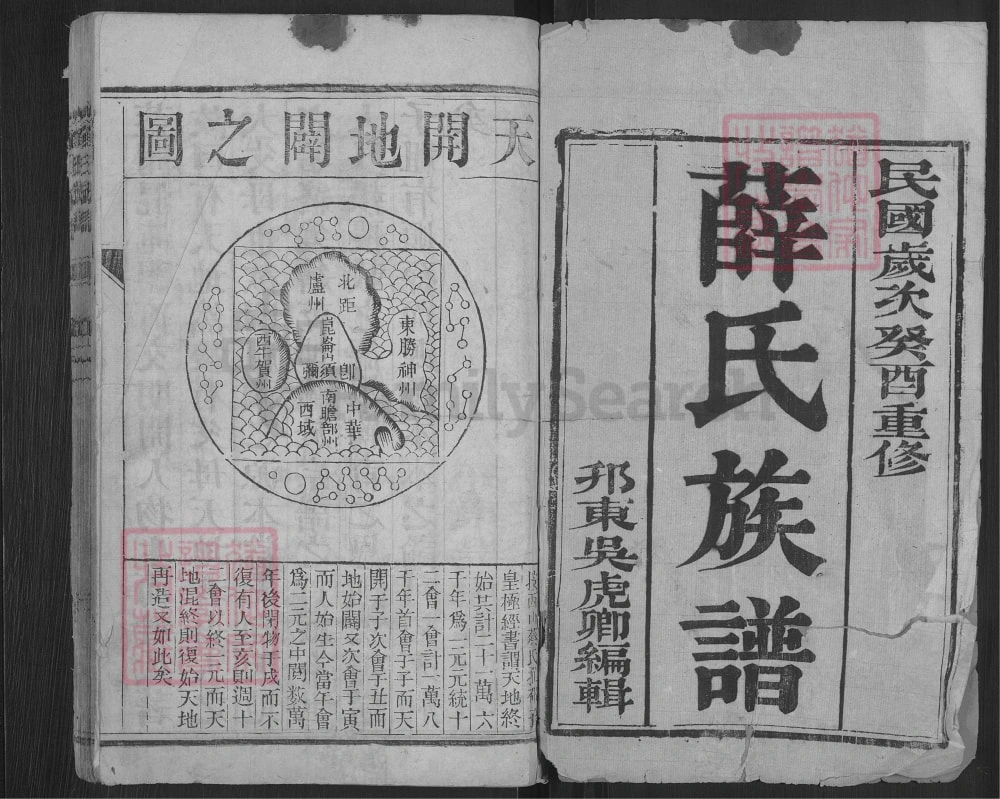 民國歲次癸酉重修
薛氏族譜
邗東吳虎卿編輯
天開地闢之圖
北距
盧州
東勝神州
崑崙
即
須
彌
西牛賀州
南瞻部州
中華
西域
皇極經書謂天地終
始其計二十一萬六
千年為一元元統十
二會一會計一萬八
千年首會于子而天
開于子次會于丑而
地始闢又次會于寅
而人始生今當午會
為一元之中閱數萬
年後閉物于戌而不
復有人至亥則週十
二會以終一元而天
地混終則復始天地
再造又如此矣
FamilySearch